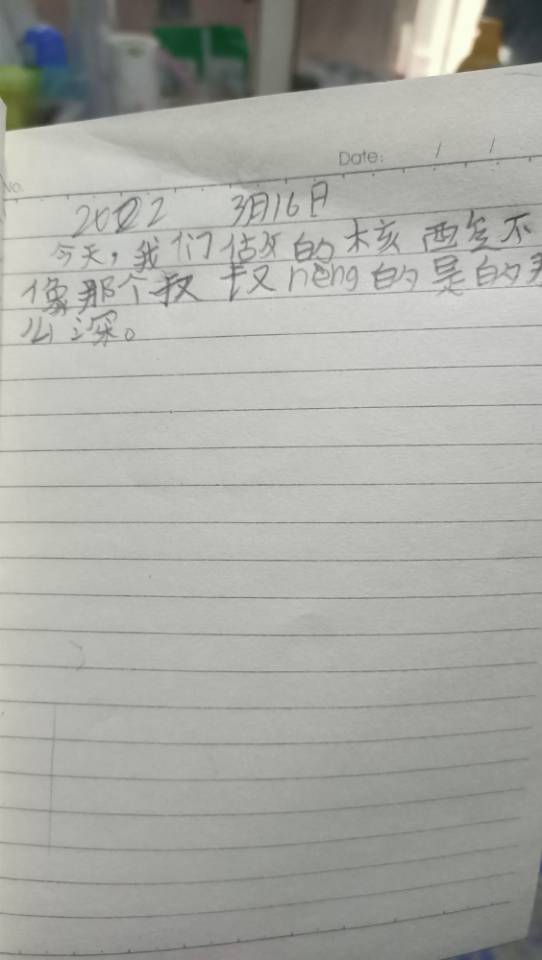 No.
Date: / /
2022 3月16日
今天,我们做的核酸不
像那个叔叔neng的是的那
么深。